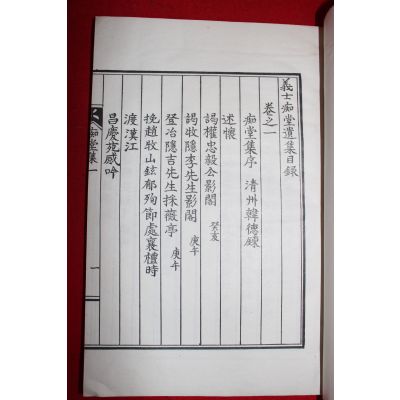 義士痴堂遺集目錄
卷之一
痴堂集序 清州韓德鍊
述懷
謁權忠毅公影閣 癸亥
謁牧隱李先生影閣 庚午
登冶隱吉先生採薇亭 庚午
挽趙牧山鉉郁殉節處襄禮時
渡漢江
昌慶苑感吟
痴堂集一
一